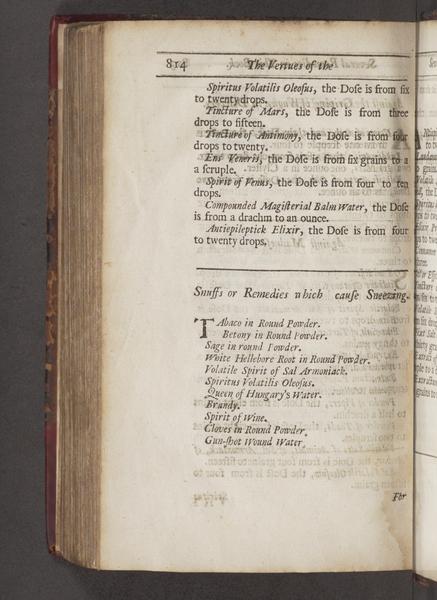 814 The Vertues of the
Spiritus Volatilis Oleoſus, the Doſe is from ſix
to twenty drops.
Tincture of Mars, the Doſe is from three
drops to fifteen.
Tincture of Antimony, the Doſe is from four
drops to twenty.
Ens Veneris, the Doſe is from ſix grains to a
a ſcruple.
Spirit of Venus, the Doſe is from four to ten
drops.
Compounded Magiſterial Balm Water, the Doſe
is from a drachm to an ounce.
Antiepileptick Elixir, the Doſe is from four
to twenty drops.
Snuffs or Remedies which cauſe Sneezing.
TAbaco in Round Powder.
Betony in Round Powder.
Sage in round Powder.
White Hellebore Root in Round Powder.
Volatile Spirit of Sal Armoniack.
Spiritus Volatilis Oleoſus.
Queen of Hungary's Water.
Brandy.
Spirit of Wine.
Cloves in Round Powder.
Gun-ſhot Wound Water.
For